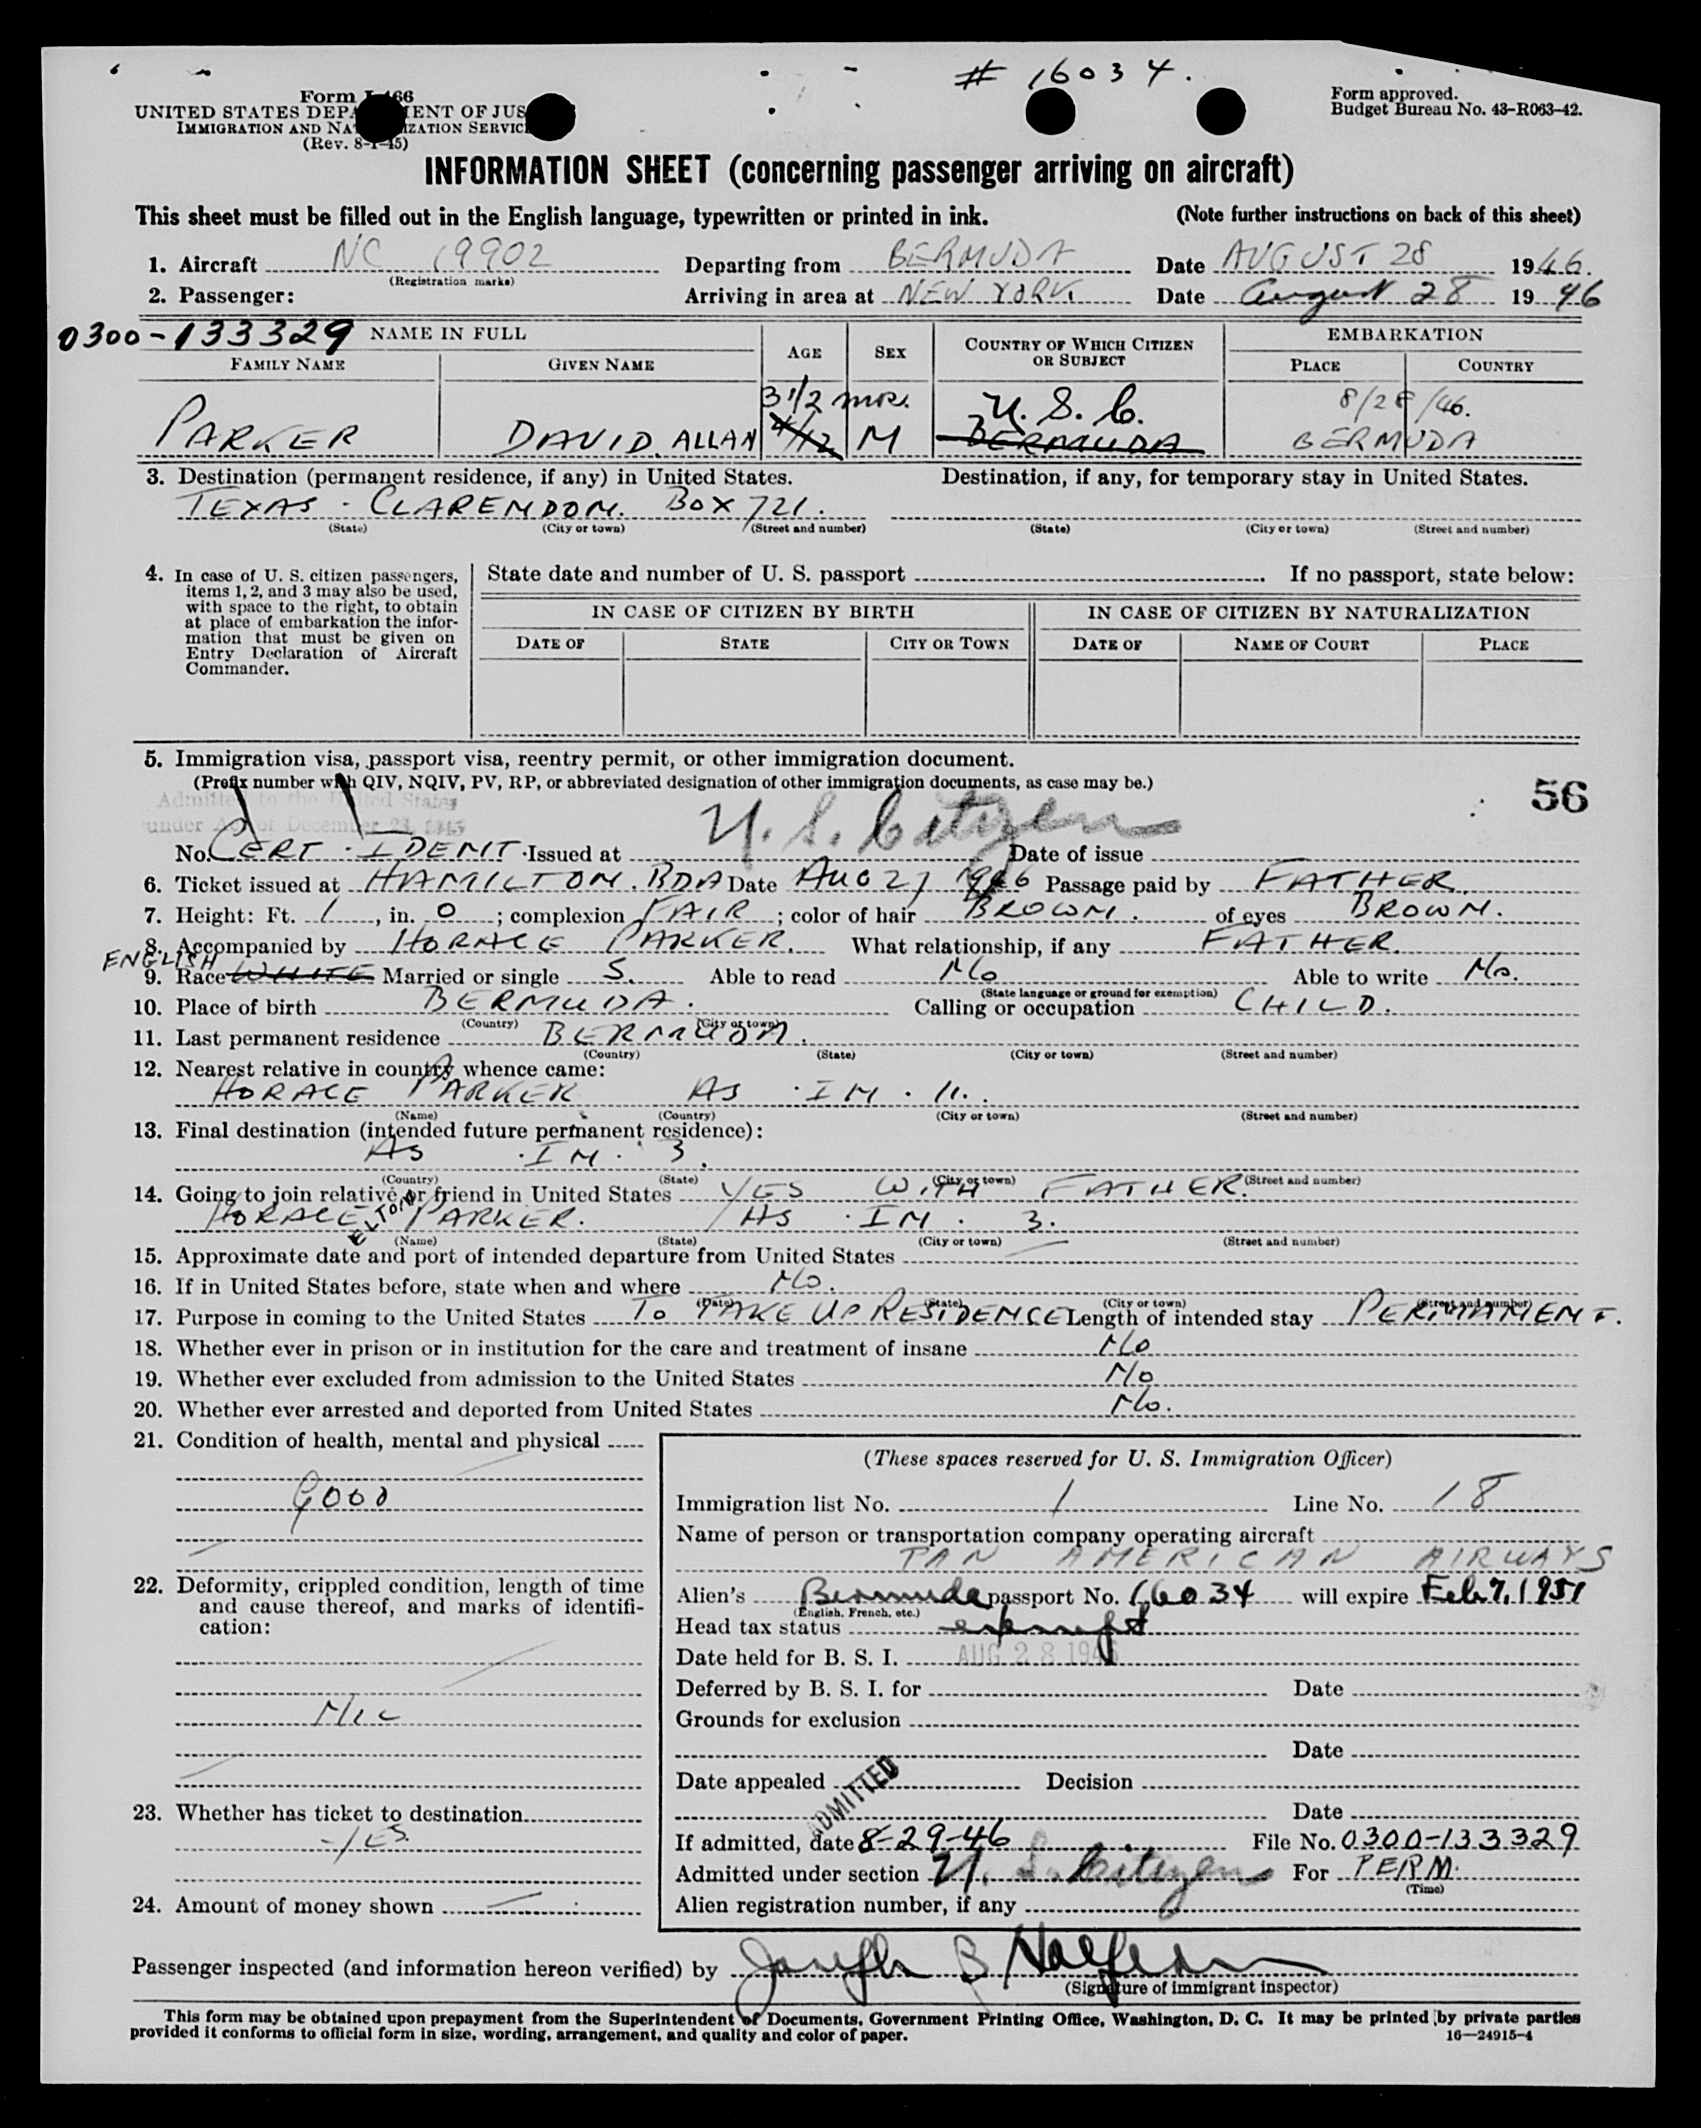 # 16034.
Form I-466
UNITED STATES DEPARTMENT OF JUSTICE
IMMIGRATION AND NATURALIZATION SERVICE
(Rev. 8-1-45)
Form approved.
Budget Bureau No. 43-R063-42.
INFORMATION SHEET (concerning passenger arriving on aircraft)
This sheet must be filled out in the English language, typewritten or printed in ink. (Note further instructions on back of this sheet)
1. Aircraft NC 19902 Departing from BERMUDA Date AUGUST 28 1946.
(Registration marks)
2. Passenger: Arriving in area at NEW YORK Date August 28 1946
0300-133329 NAME IN FULL AGE SEX COUNTRY OF WHICH CITIZEN OR SUBJECT EMBARKATION
FAMILY NAME GIVEN NAME PLACE COUNTRY
3 1/2 mos. U.S.C. 8/28/46.
PARKER DAVID. ALLAN 4/12 M BERMUDA BERMUDA
3. Destination (permanent residence, if any) in United States. Destination, if any, for temporary stay in United States.
TEXAS - CLARENDON. BOX 721.
(State) (City or town) (Street and number) (State) (City or town) (Street and number)
4. In case of U. S. citizen passengers, items 1, 2, and 3 may also be used, with space to the right, to obtain at place of embarkation the information that must be given on Entry Declaration of Aircraft Commander.
State date and number of U. S. passport . If no passport, state below:
IN CASE OF CITIZEN BY BIRTH IN CASE OF CITIZEN BY NATURALIZATION
DATE OF STATE CITY OR TOWN DATE OF NAME OF COURT PLACE
5. Immigration visa, passport visa, reentry permit, or other immigration document.
(Prefix number with QIV, NQIV, PV, RP, or abbreviated designation of other immigration documents, as case may be.)
56
Admitted to the United States
under Act of December 28, 1945
U.S. Citizen
No. CERT. IDENT. Issued at Date of issue
6. Ticket issued at HAMILTON. BDA Date AUG 27 1946 Passage paid by FATHER.
7. Height: Ft. 1, in. 0; complexion FAIR; color of hair BROWN. of eyes BROWN.
8. Accompanied by HORACE PARKER. What relationship, if any FATHER.
ENGLISH
9. Race WHITE Married or single S. Able to read No Able to write No.
(State language or ground for exemption)
10. Place of birth BERMUDA. Calling or occupation CHILD.
(Country) (City or town)
11. Last permanent residence BERMUDA.
(Country) (State) (City or town) (Street and number)
12. Nearest relative in country whence came:
HORACE PARKER AS. IN. 11.
(Name) (Country) (City or town) (Street and number)
13. Final destination (intended future permanent residence):
AS. IN. 3.
(Country) (State) (City or town) (Street and number)
14. Going to join relative or friend in United States YES WITH FATHER.
HORACE ELTON PARKER. AS. IN. 3.
(Name) (State) (City or town) (Street and number)
15. Approximate date and port of intended departure from United States —
16. If in United States before, state when and where No.
(Date) (State) (City or town) (Street and number)
17. Purpose in coming to the United States TO TAKE UP RESIDENCE Length of intended stay PERMANENT.
18. Whether ever in prison or in institution for the care and treatment of insane No
19. Whether ever excluded from admission to the United States No
20. Whether ever arrested and deported from United States No.
21. Condition of health, mental and physical
GOOD
22. Deformity, crippled condition, length of time and cause thereof, and marks of identification:
NIL
23. Whether has ticket to destination
YES.
24. Amount of money shown —
(These spaces reserved for U. S. Immigration Officer)
Immigration list No. 1 Line No. 18
Name of person or transportation company operating aircraft
PAN AMERICAN AIRWAYS
Alien's Bermuda passport No. 16034 will expire Feb 7, 1951
(English, French, etc.)
Head tax status exempt
Date held for B. S. I. AUG 28 1946
Deferred by B. S. I. for Date
Grounds for exclusion
Date
Date appealed Decision
ADMITTED
Date
If admitted, date 8-29-46 File No. 0300-133329
Admitted under section U.S. Citizen For PERM.
(Time)
Alien registration number, if any
Passenger inspected (and information hereon verified) by Joseph B
(Signature of immigrant inspector)
This form may be obtained upon prepayment from the Superintendent of Documents, Government Printing Office, Washington, D. C. It may be printed by private parties
provided it conforms to official form in size, wording, arrangement, and quality and color of paper. 16—24915-4